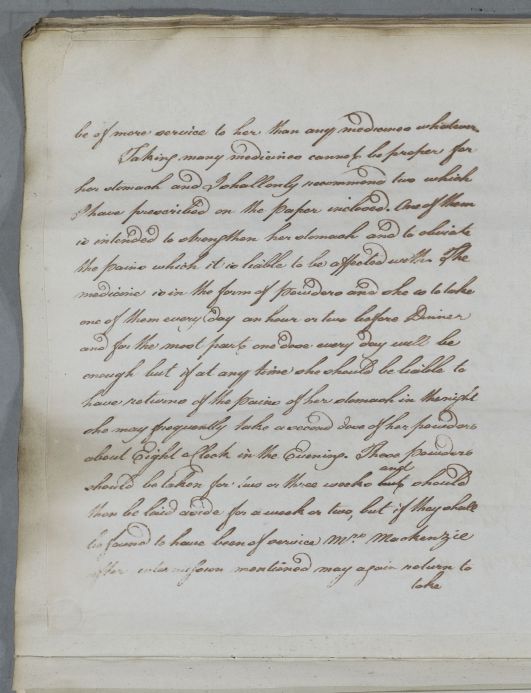 be of more service to her than any medicines whatever.
Taking many medicines cannot be proper for
her stomach and I shall only recommend two which
I have prescribed on the paper inclosed. One of them
is intended to strengthen her stomach and to obviate
the pains which it is liable to be affected with. The
medicine is in the form of Powders and she is to take
one of them every day an hour or two before Dinner
and for the most part, one dose every day will be
enough but if at any time she should be liable to
have returns of the pains of her stomach in the night
she may frequently take a second dose of her powders
about Eight o'Clock in the Evening. These powders
should be taken for two or three weeks and should
then be laid aside for a week or two, but if they shall
be found to have been of service Mrs. Mackenzie
after intermission mentioned may again return to
take